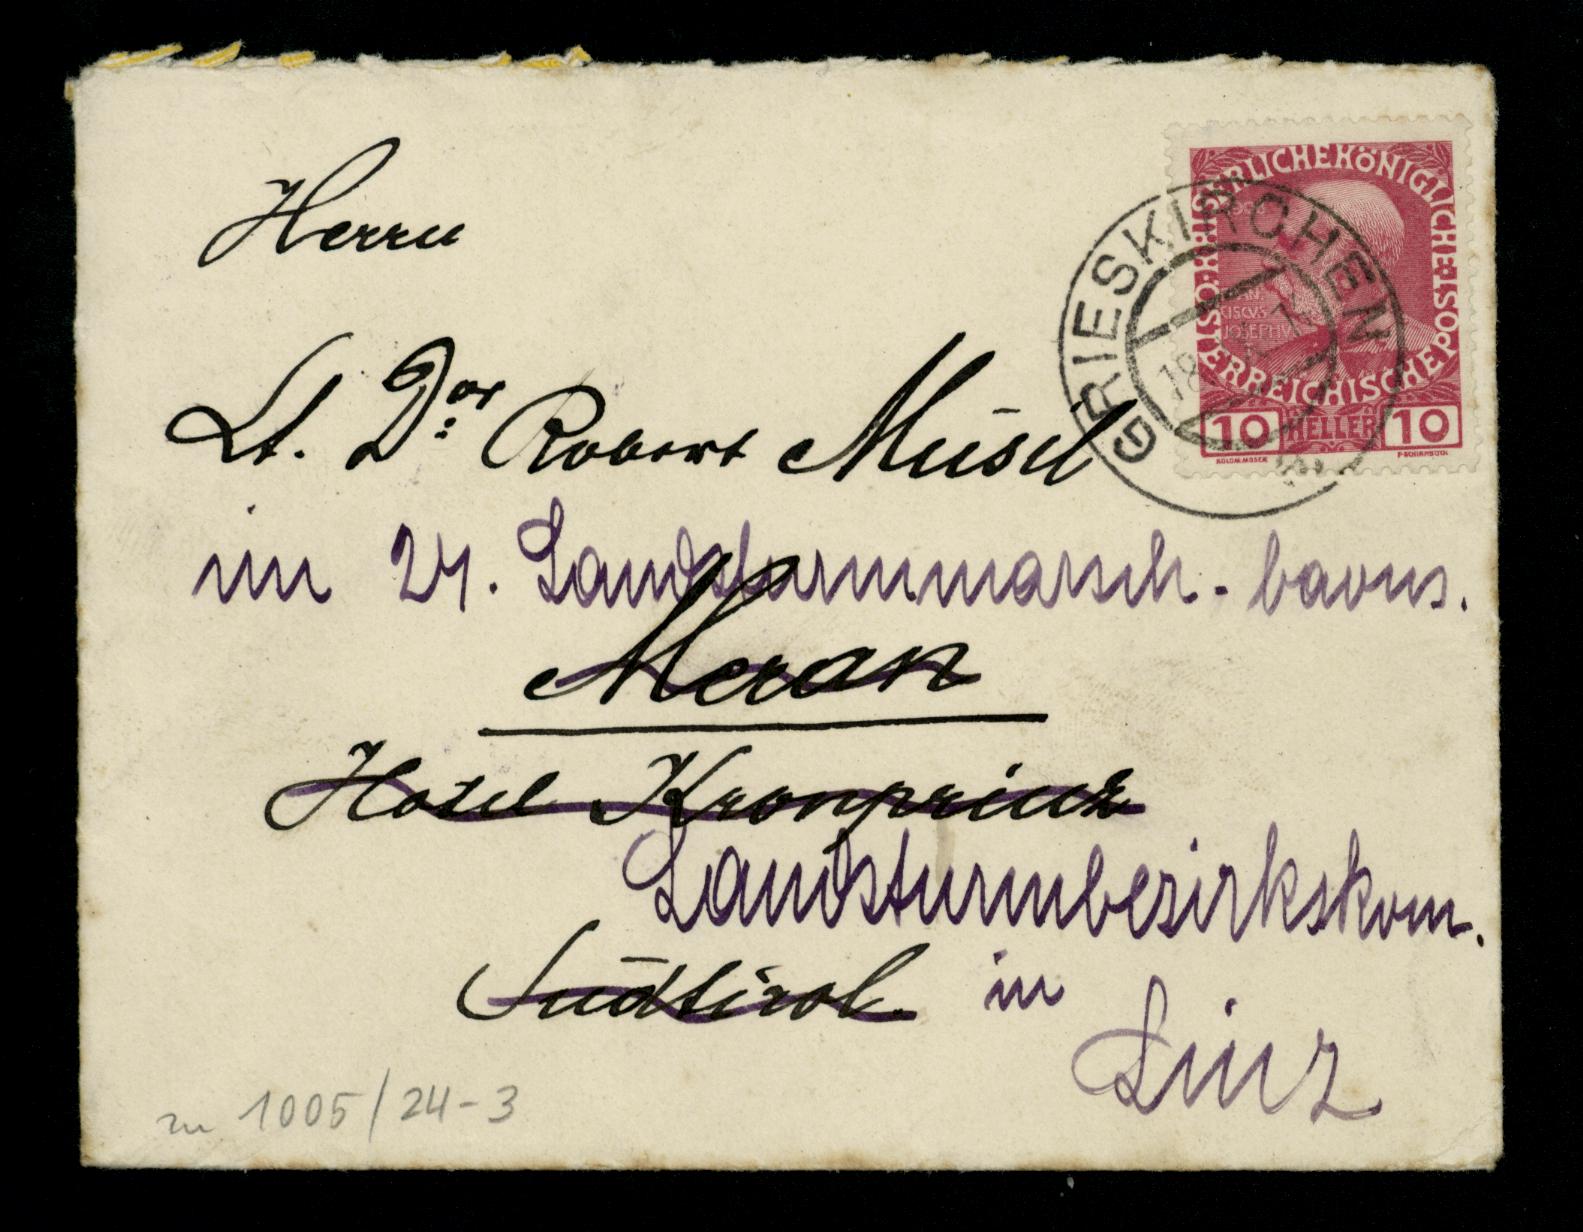 Herrn
Lt. Dor Robert Musil
im 24. Landsturmmarsch-baons.
Meran
Hotel Kronprinz
Landsturmbezirkskom.
Südtirol. in
Linz
zu 1005/24-3
KAISERLICHEKÖNIGLICHE
ÖSTERREICHISCHEPOST
1908
CISCVS
JOSEPHVS
10 HELLER 10
KOLOM.MOSER
GRIESKIRCHEN
18